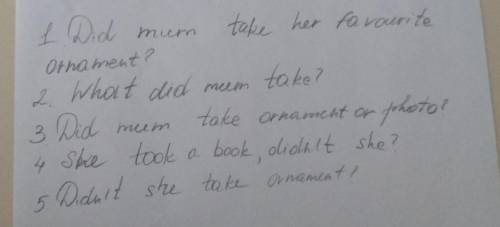 1 Did mum take her favourite
ornament?
2. What did mum take?
3 Did mum take ornament or photo?
4 She took a book, didn't she?
5 Didn't she take ornament?